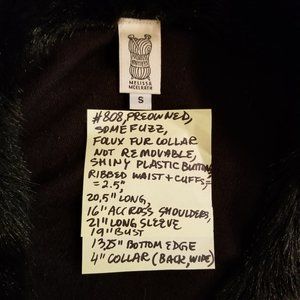 MELISSA
MCELRATH
S
#808, PREOWNED,
SOME FUZZ,
FOUX FUR COLLAR
NOT REMOVABLE,
SHINY PLASTIC BUTTON,
RIBBED WAIST + CUFFS,
= 2.5",
20,5" LONG,
16" ACCROSS SHOULDERS,
21" LONG SLEEVE
19" BUST
13,25" BOTTOM EDGE
4" COLLAR (BACK, WIDE)